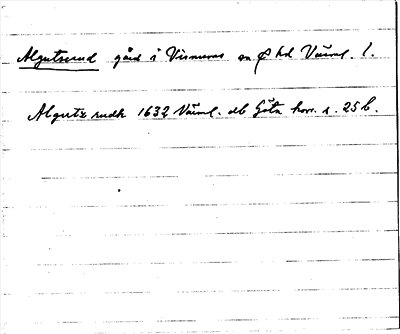 Algutsrud gård i Visnums sn Ø hd Värml. l.
Algutz rudh 1632 Värml. db Göta hovr. s. 25 b.